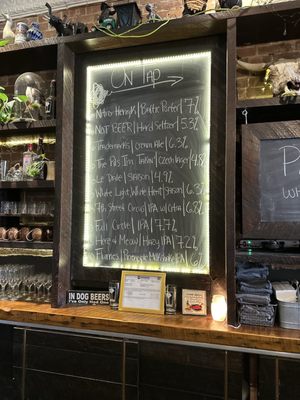 ON TAP
Nitro Henry's | Baltic Porter | 7%
NOT BEER | Hard Seltzer | 5.3%
Trademarks | Cream Ale | 5%
The Pils Inn, Tarkin | Czech Lager | 4.8%
Le Dive | SAISON | 4.9%
White Light, White Heat | SAISON | 6.3%
7th Street Circus | IPA w/ Citra | 6.8%
Full Circle | IPA | 7.7%
Here & Meow | Hazy IPA | 7.2%
Flumes | Pineapple Milkshake IPA | 6%
IN DOG BEERS
I've Only Had One